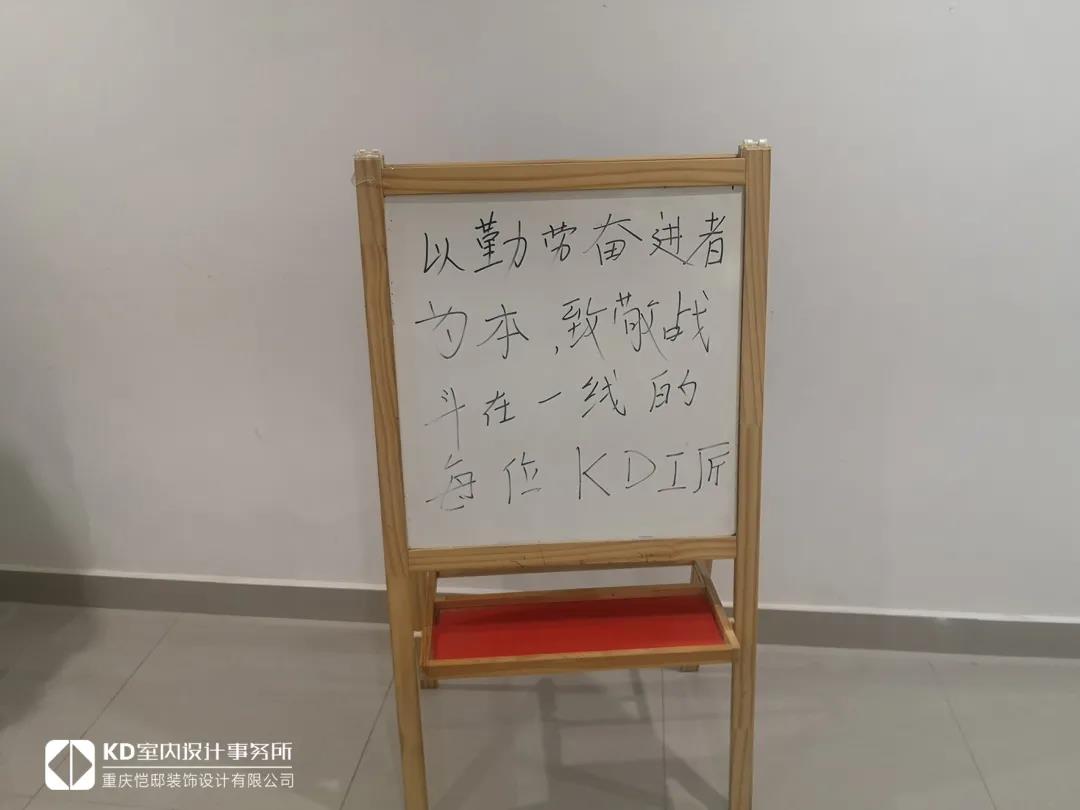 以勤劳奋进者
为本,致敬战
斗在一线的
每位KD工匠
KD室内设计事务所
重庆恺邸装饰设计有限公司